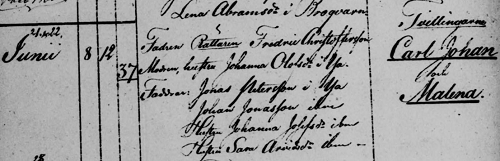 Lena Abramsdr i Brogvarn
Junii 8 12
37
Fadren Rättaren Fredric Christoffersson
Modren, hustru Johanna Olofsdr i Ysa
Faddrar: Jonas Petersson i Ysa
Johan Jonasson ibm
Hustru Johanna Josefsdr ibm
Hustru Sara Arvidsdr ibm –
Tvillingarna
Carl Johan
och
Malena.